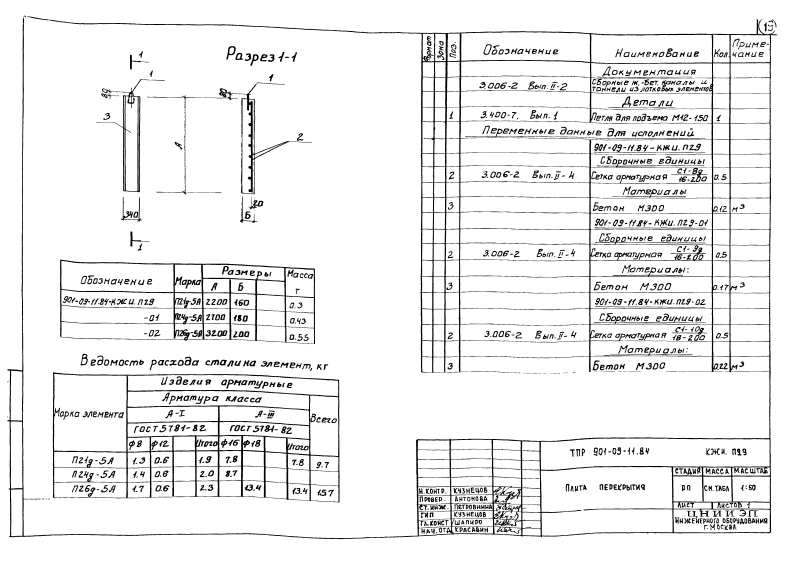 19
Разрез 1-1
1
1
80
80
1
3
А
2
20
340
Б
1
Обозначение Марка Размеры Масса
А Б т
901-09-11.84-КЖИ.П29 П21д-5А 2200 160 0.3
-01 П24д-5А 2700 180 0.43
-02 П26д-5А 3200 200 0.55
Ведомость расхода стали на элемент, кг
Марка элемента Изделия арматурные Всего
Арматура класса
А-I А-III
ГОСТ 5781-82 ГОСТ 5781-82
ф8 ф12 Итого ф16 ф18 Итого
П21д-5А 1.3 0.6 1.9 7.8 7.8 9.7
П24д-5А 1.4 0.6 2.0 8.7
П26д-5А 1.7 0.6 2.3 13.4 13.4 15.7
Формат Зона Поз. Обозначение Наименование Кол. Приме-
чание
Документация
3.006-2 Вып. II-2 Сборные ж.-бет. каналы и
тоннели из лотковых элементов
Детали
1 3.400-7. Вып. 1 Петля для подъема М12-150 1
Переменные данные для исполнений
901-09-11.84-КЖИ.П29
Сборочные единицы
2 3.006-2 Вып. II-4 Сетка арматурная С1-8д/16-200 0.5
Материалы
3 Бетон М300 0.12 м³
901-09-11.84-КЖИ.П29-01
Сборочные единицы
2 3.006-2 Вып. II-4 Сетка арматурная С1-9д/16-200 0.5
Материалы:
3 Бетон М300 0.17 м³
901-09-11.84-КЖИ.П29-02
Сборочные единицы
2 3.006-2 Вып. II-4 Сетка арматурная С1-10д/18-200 0.5
Материалы:
3 Бетон М300 0.22 м³
ТПР 901-09-11.84 КЖИ. П29
Плита перекрытия
СТАДИЯ МАССА МАСШТАБ
РП СМ.ТАБЛ 1:50
ЛИСТ ЛИСТОВ 1
ЦНИИЭП
ИНЖЕНЕРНОГО ОБОРУДОВАНИЯ
Г. МОСКВА
Н.КОНТР. КУЗНЕЦОВ
ПРОВЕР. АНТОНОВА
СТ.ИНЖ. ПЕТРОВНИНА
ГИП КУЗНЕЦОВ
ГЛ.КОНСТ ШАПИРО
НАЧ.ОТД КРАСАВИН